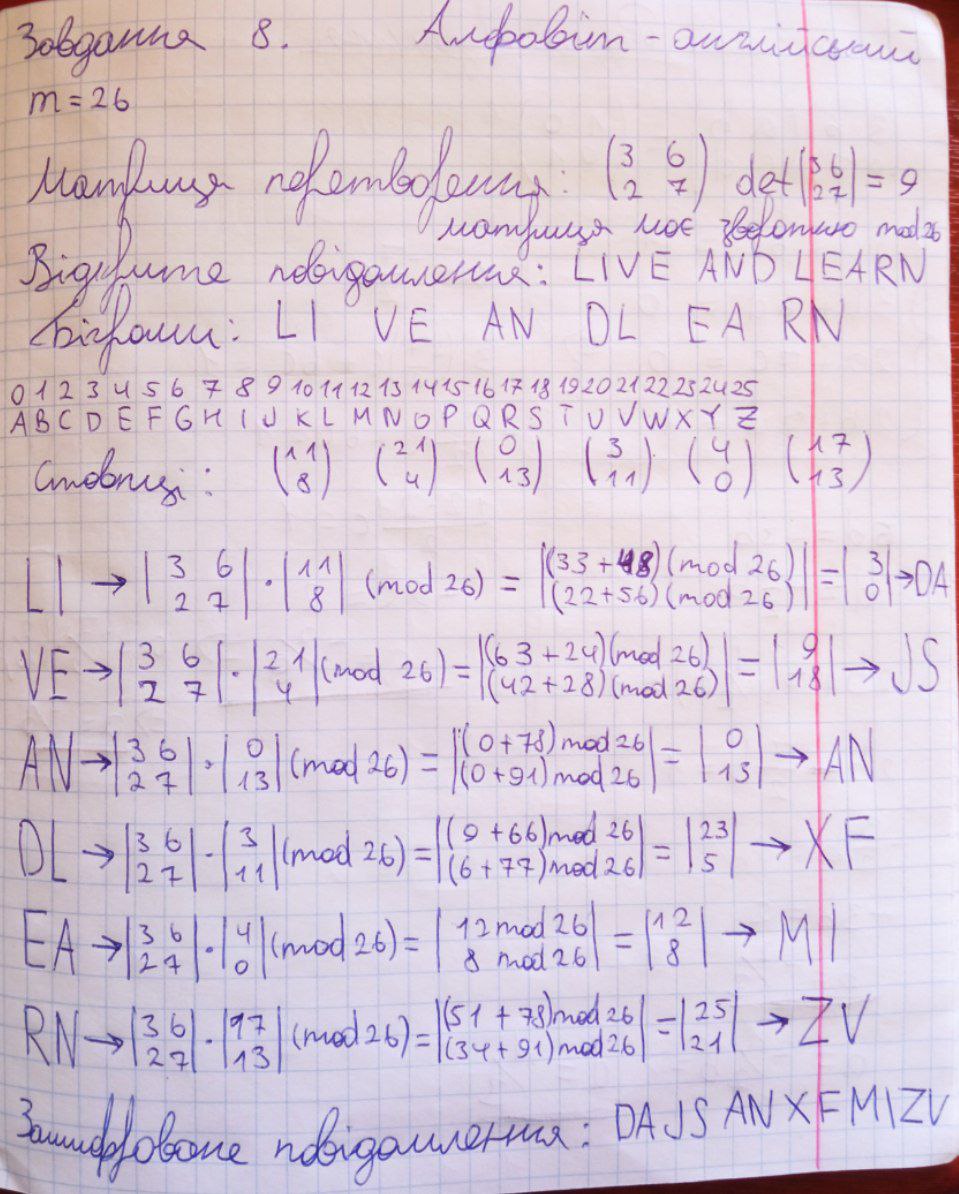 Завдання 8. Алфавіт - англійський
m = 26
Матриця перетворення: (3 6 2 7) det|3 6 2 7| = 9
матриця має зворотню mod 26
Відкрите повідомлення: LIVE AND LEARN
Біграми: LI VE AN DL EA RN
0 1 2 3 4 5 6 7 8 9 10 11 12 13 14 15 16 17 18 19 20 21 22 23 24 25
A B C D E F G H I J K L M N O P Q R S T U V W X Y Z
Стовпці: (11 8) (21 4) (0 13) (3 11) (4 0) (17 13)
LI → |3 6 2 7| · |11 8| (mod 26) = |(33+48)(mod 26) (22+56)(mod 26)| = |3 0| → DA
VE → |3 6 2 7| · |21 4| (mod 26) = |(63+24)(mod 26) (42+28)(mod 26)| = |9 18| → JS
AN → |3 6 2 7| · |0 13| (mod 26) = |(0+78)mod 26 (0+91)mod 26| = |0 13| → AN
DL → |3 6 2 7| · |3 11| (mod 26) = |(9+66)mod 26 (6+77)mod 26| = |23 5| → XF
EA → |3 6 2 7| · |4 0| (mod 26) = |12 mod 26 8 mod 26| = |12 8| → MI
RN → |3 6 2 7| · |17 13| (mod 26) = |(51+78)mod 26 (34+91)mod 26| = |25 21| → ZV
Зашифроване повідомлення: DAJSANXFMIZV